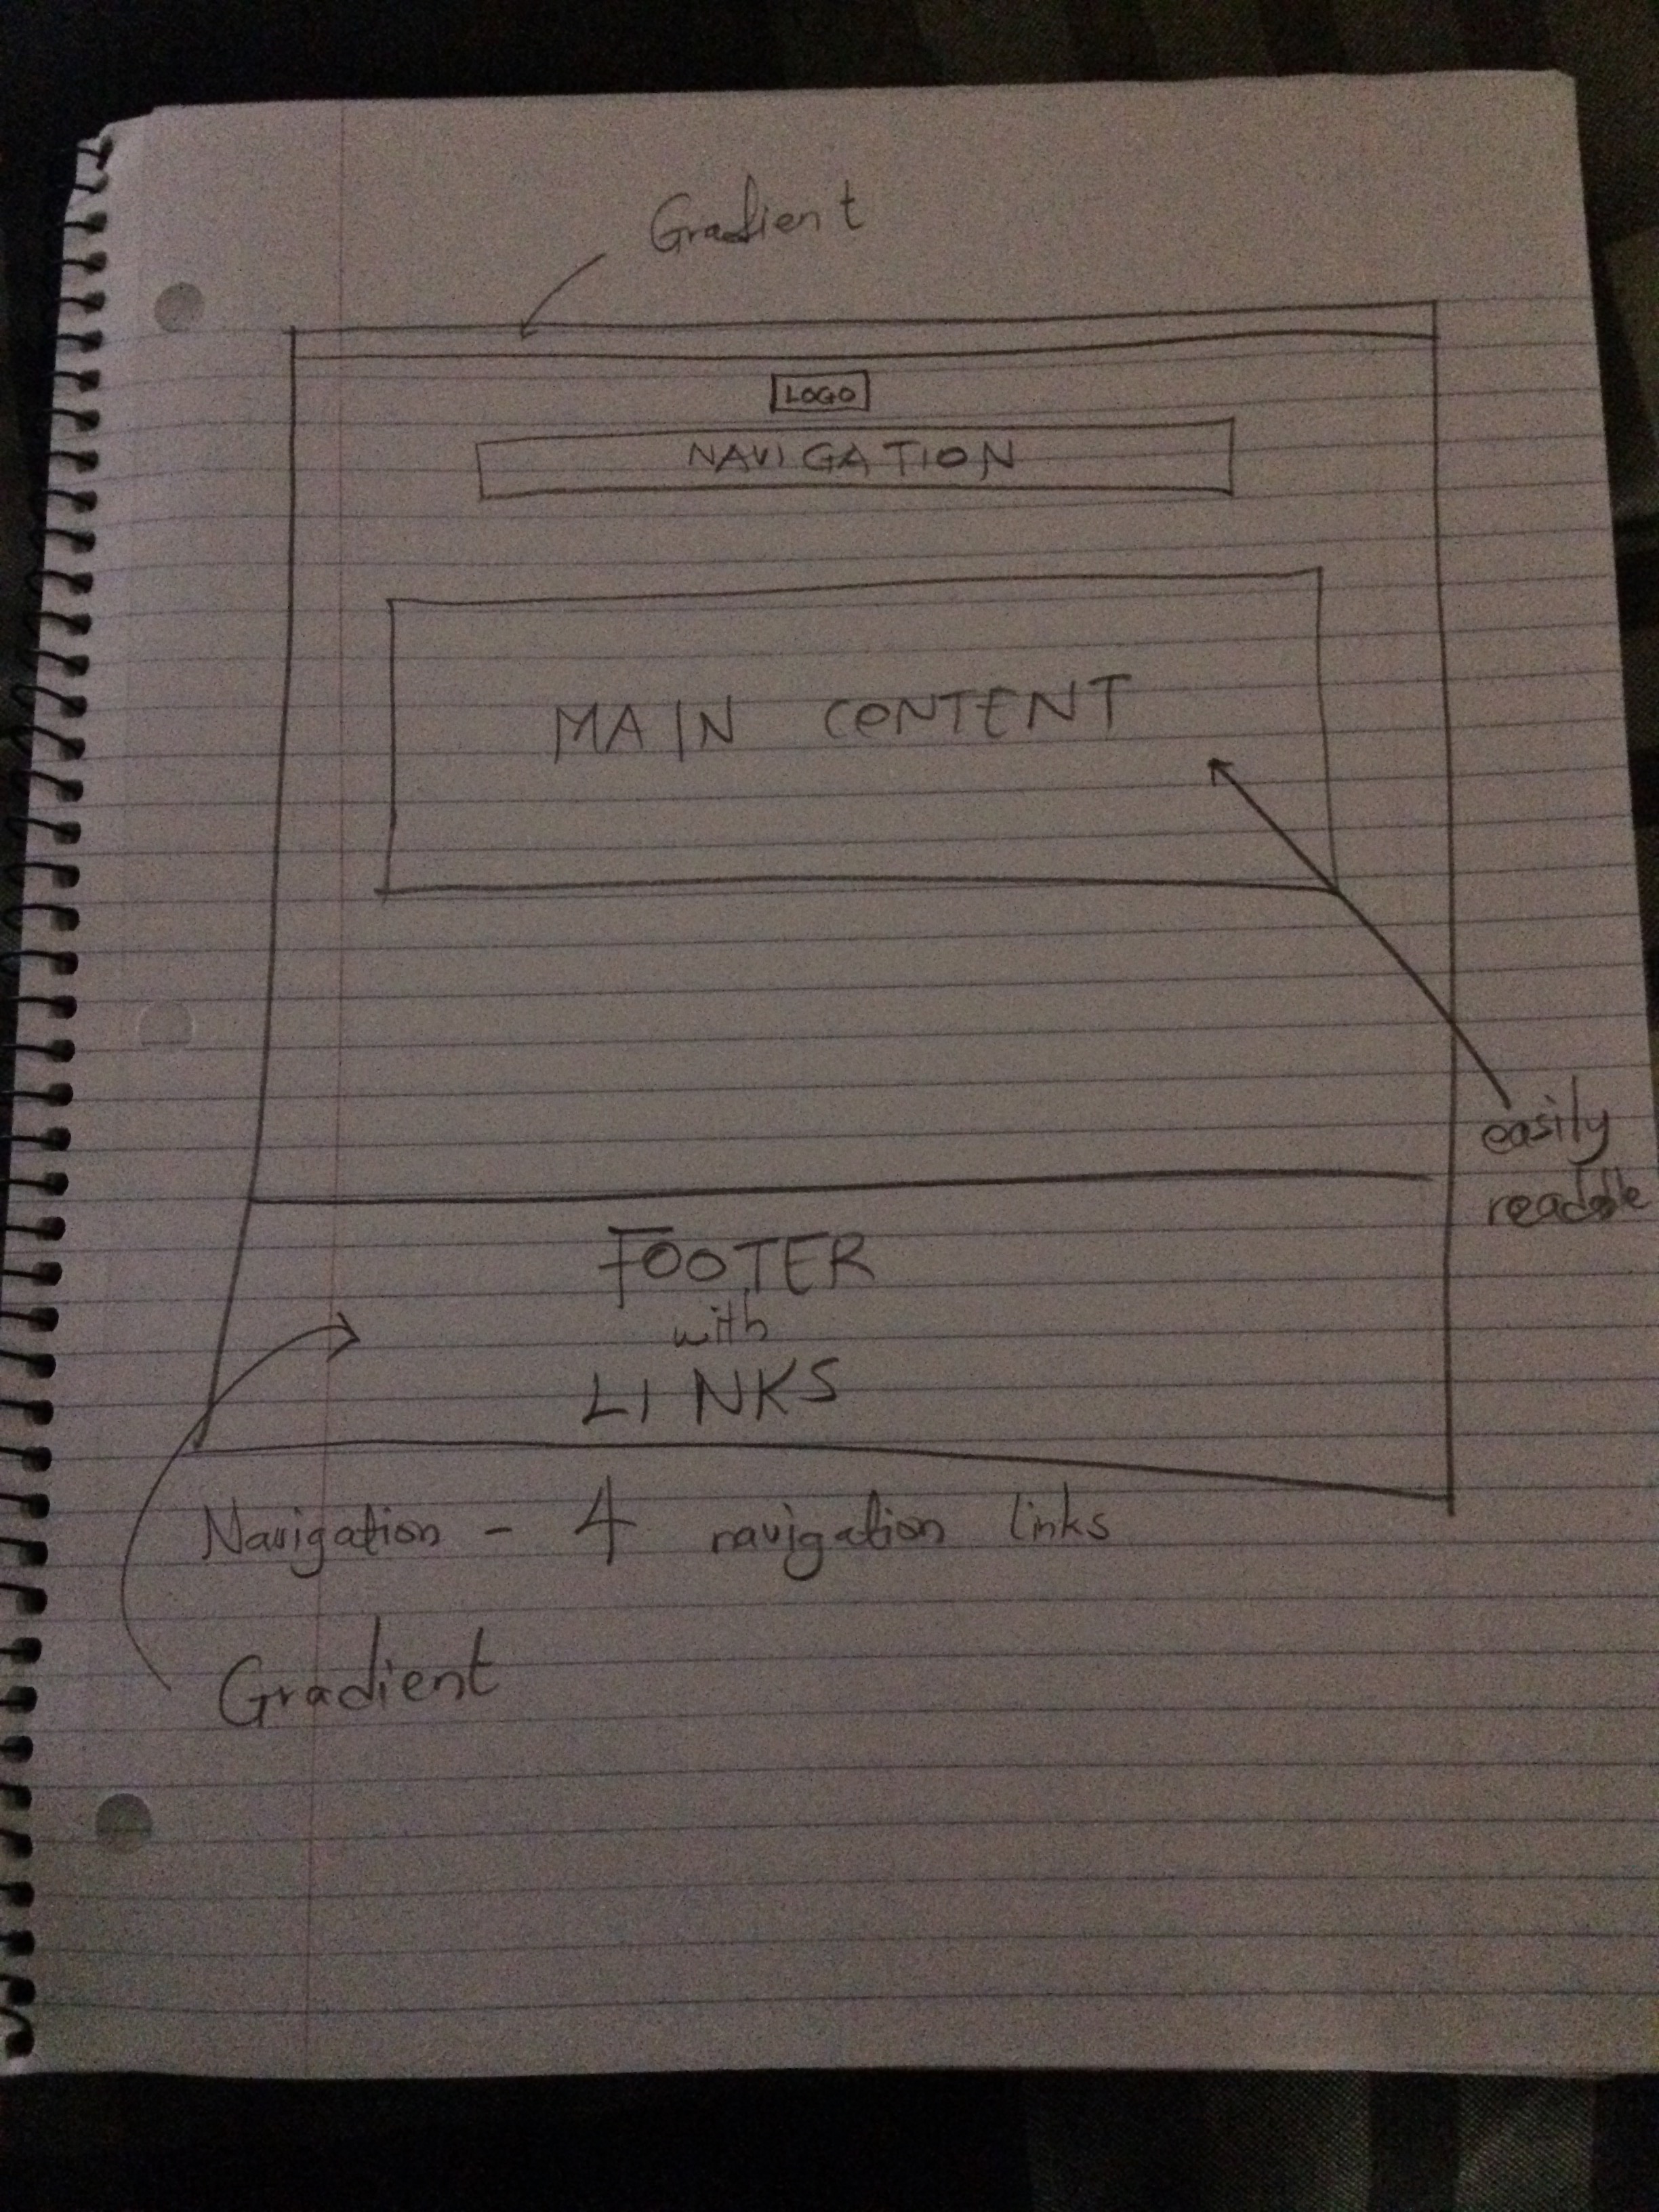 Gradient
LOGO
NAVIGATION
MAIN CONTENT
easily
readable
FOOTER
with
LINKS
Navigation - 4 navigation links
Gradient